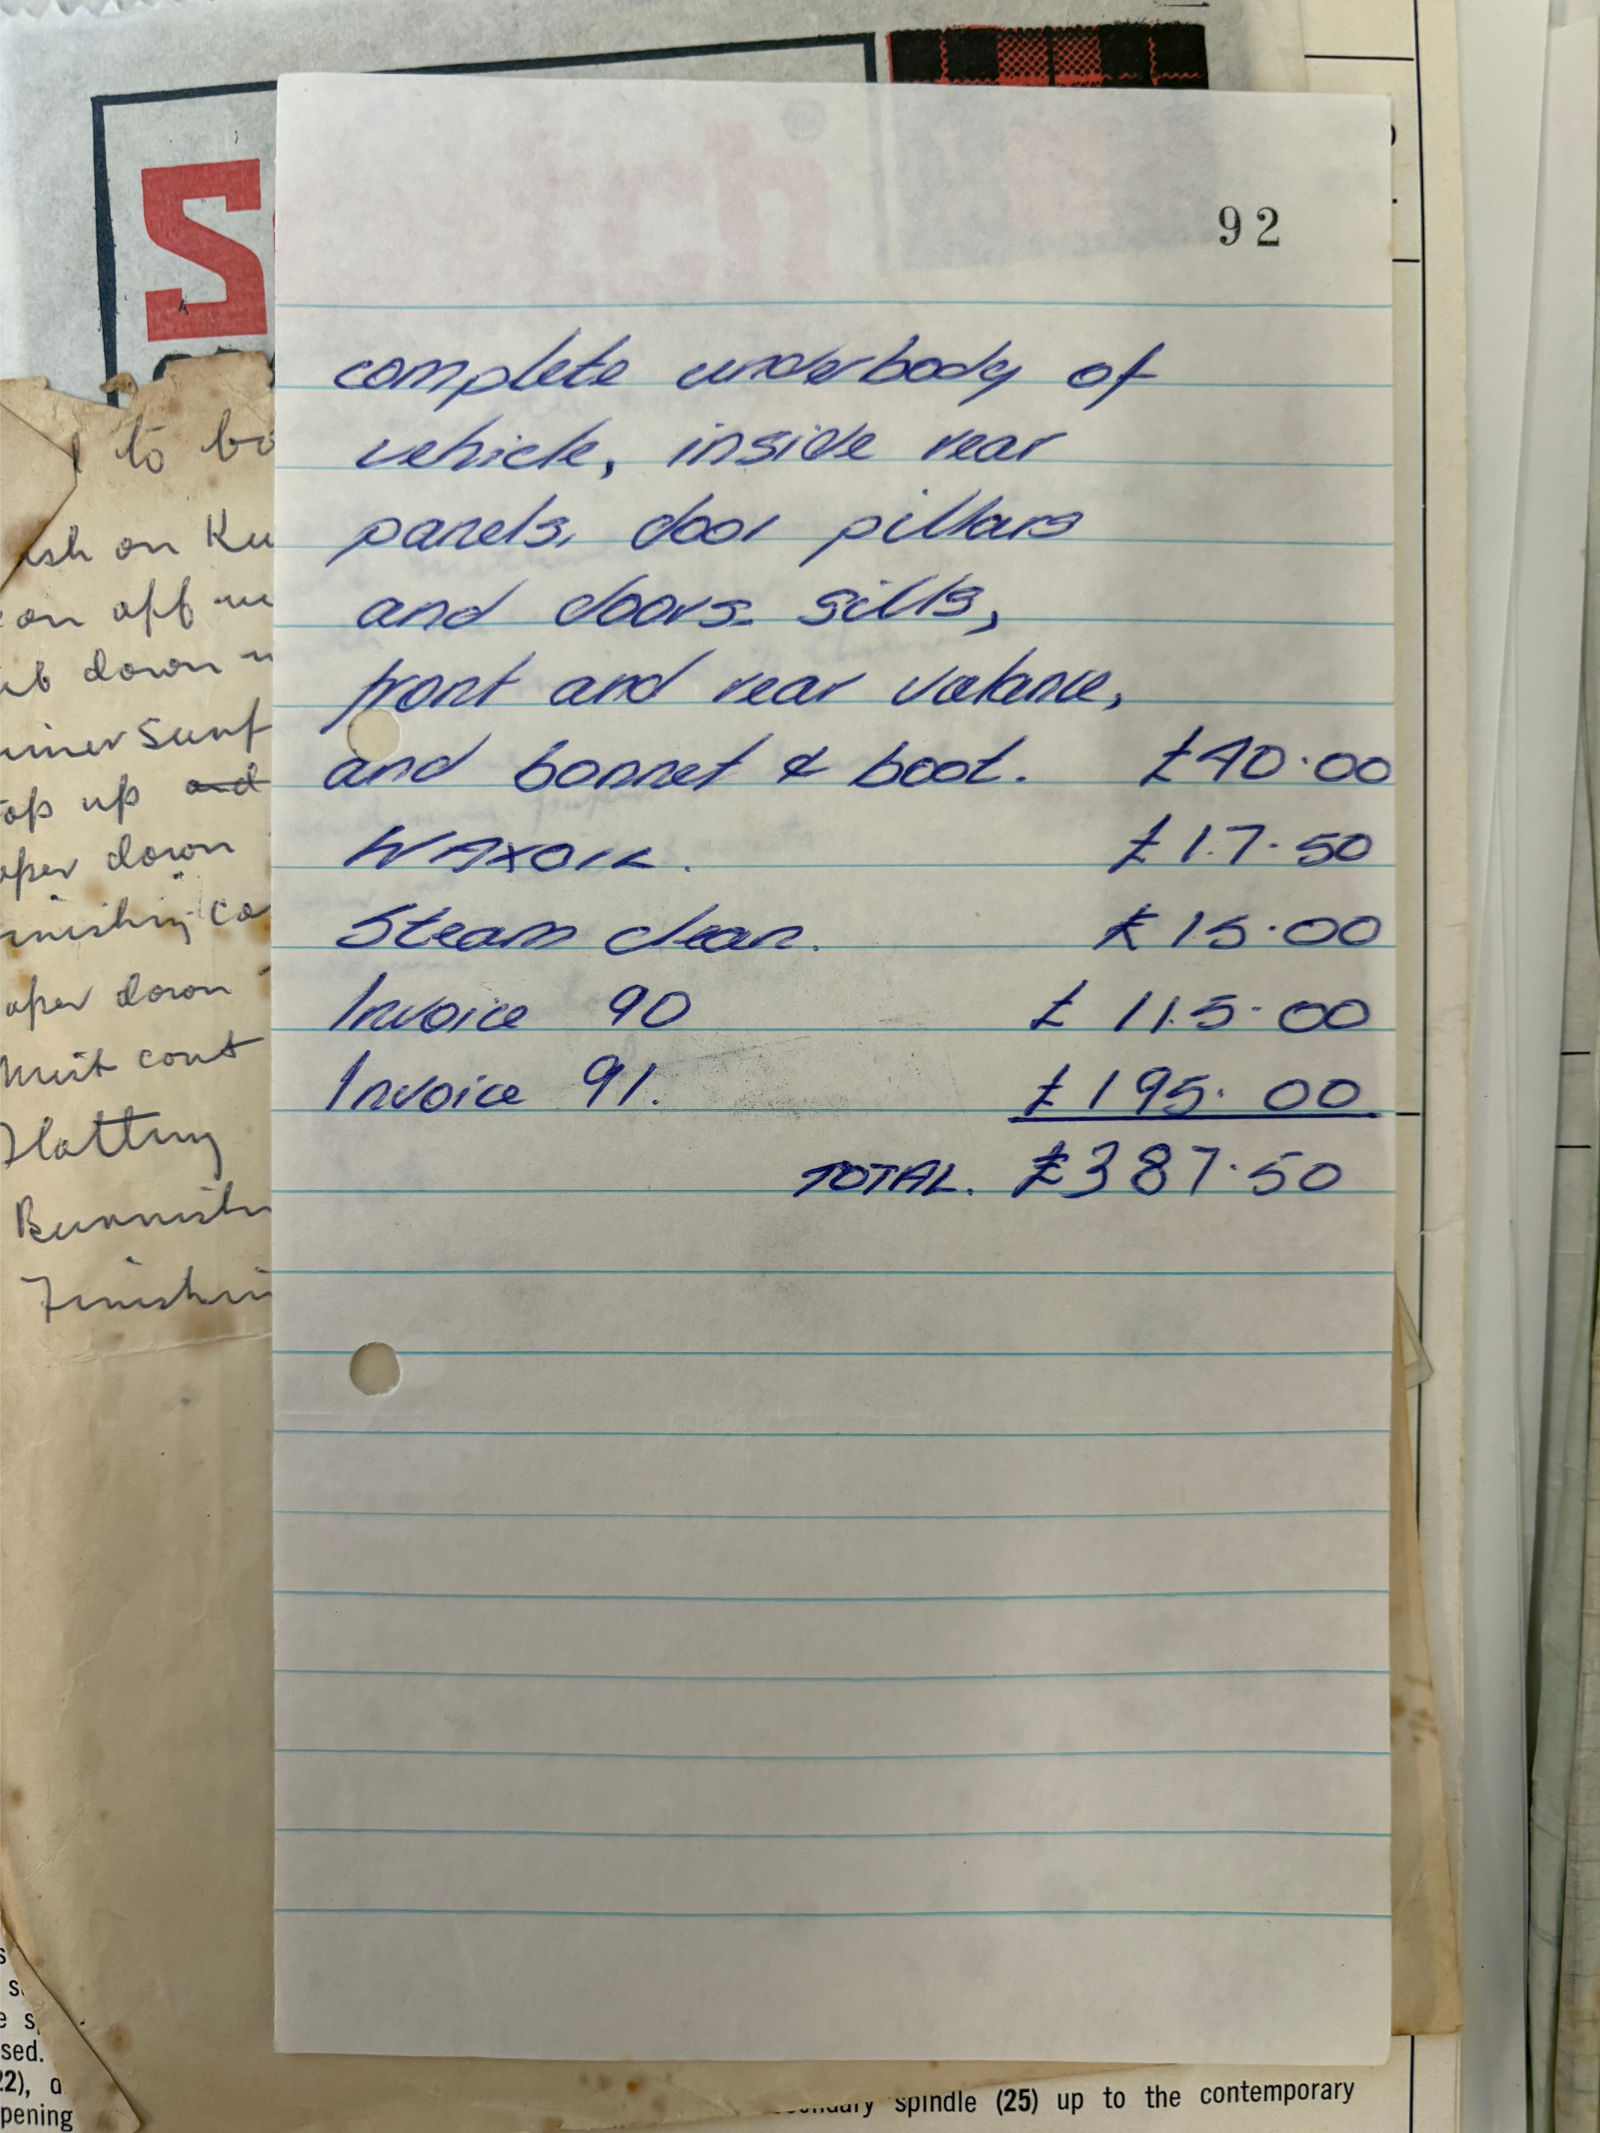 S
92
complete underbody of
vehicle, inside rear
panels, door pillars
and doors. sills,
front and rear valance,
and bonnet & boot. £40.00
WAXOIL. £17.50
Steam clean. £15.00
Invoice 90 £115.00
Invoice 91. £195.00
TOTAL. £387.50
to bo
on Ku
off
down
Surf
up and
down
co
down
cont
Flatting
sed.
22), a
pening
spindle (25) up to the contemporary